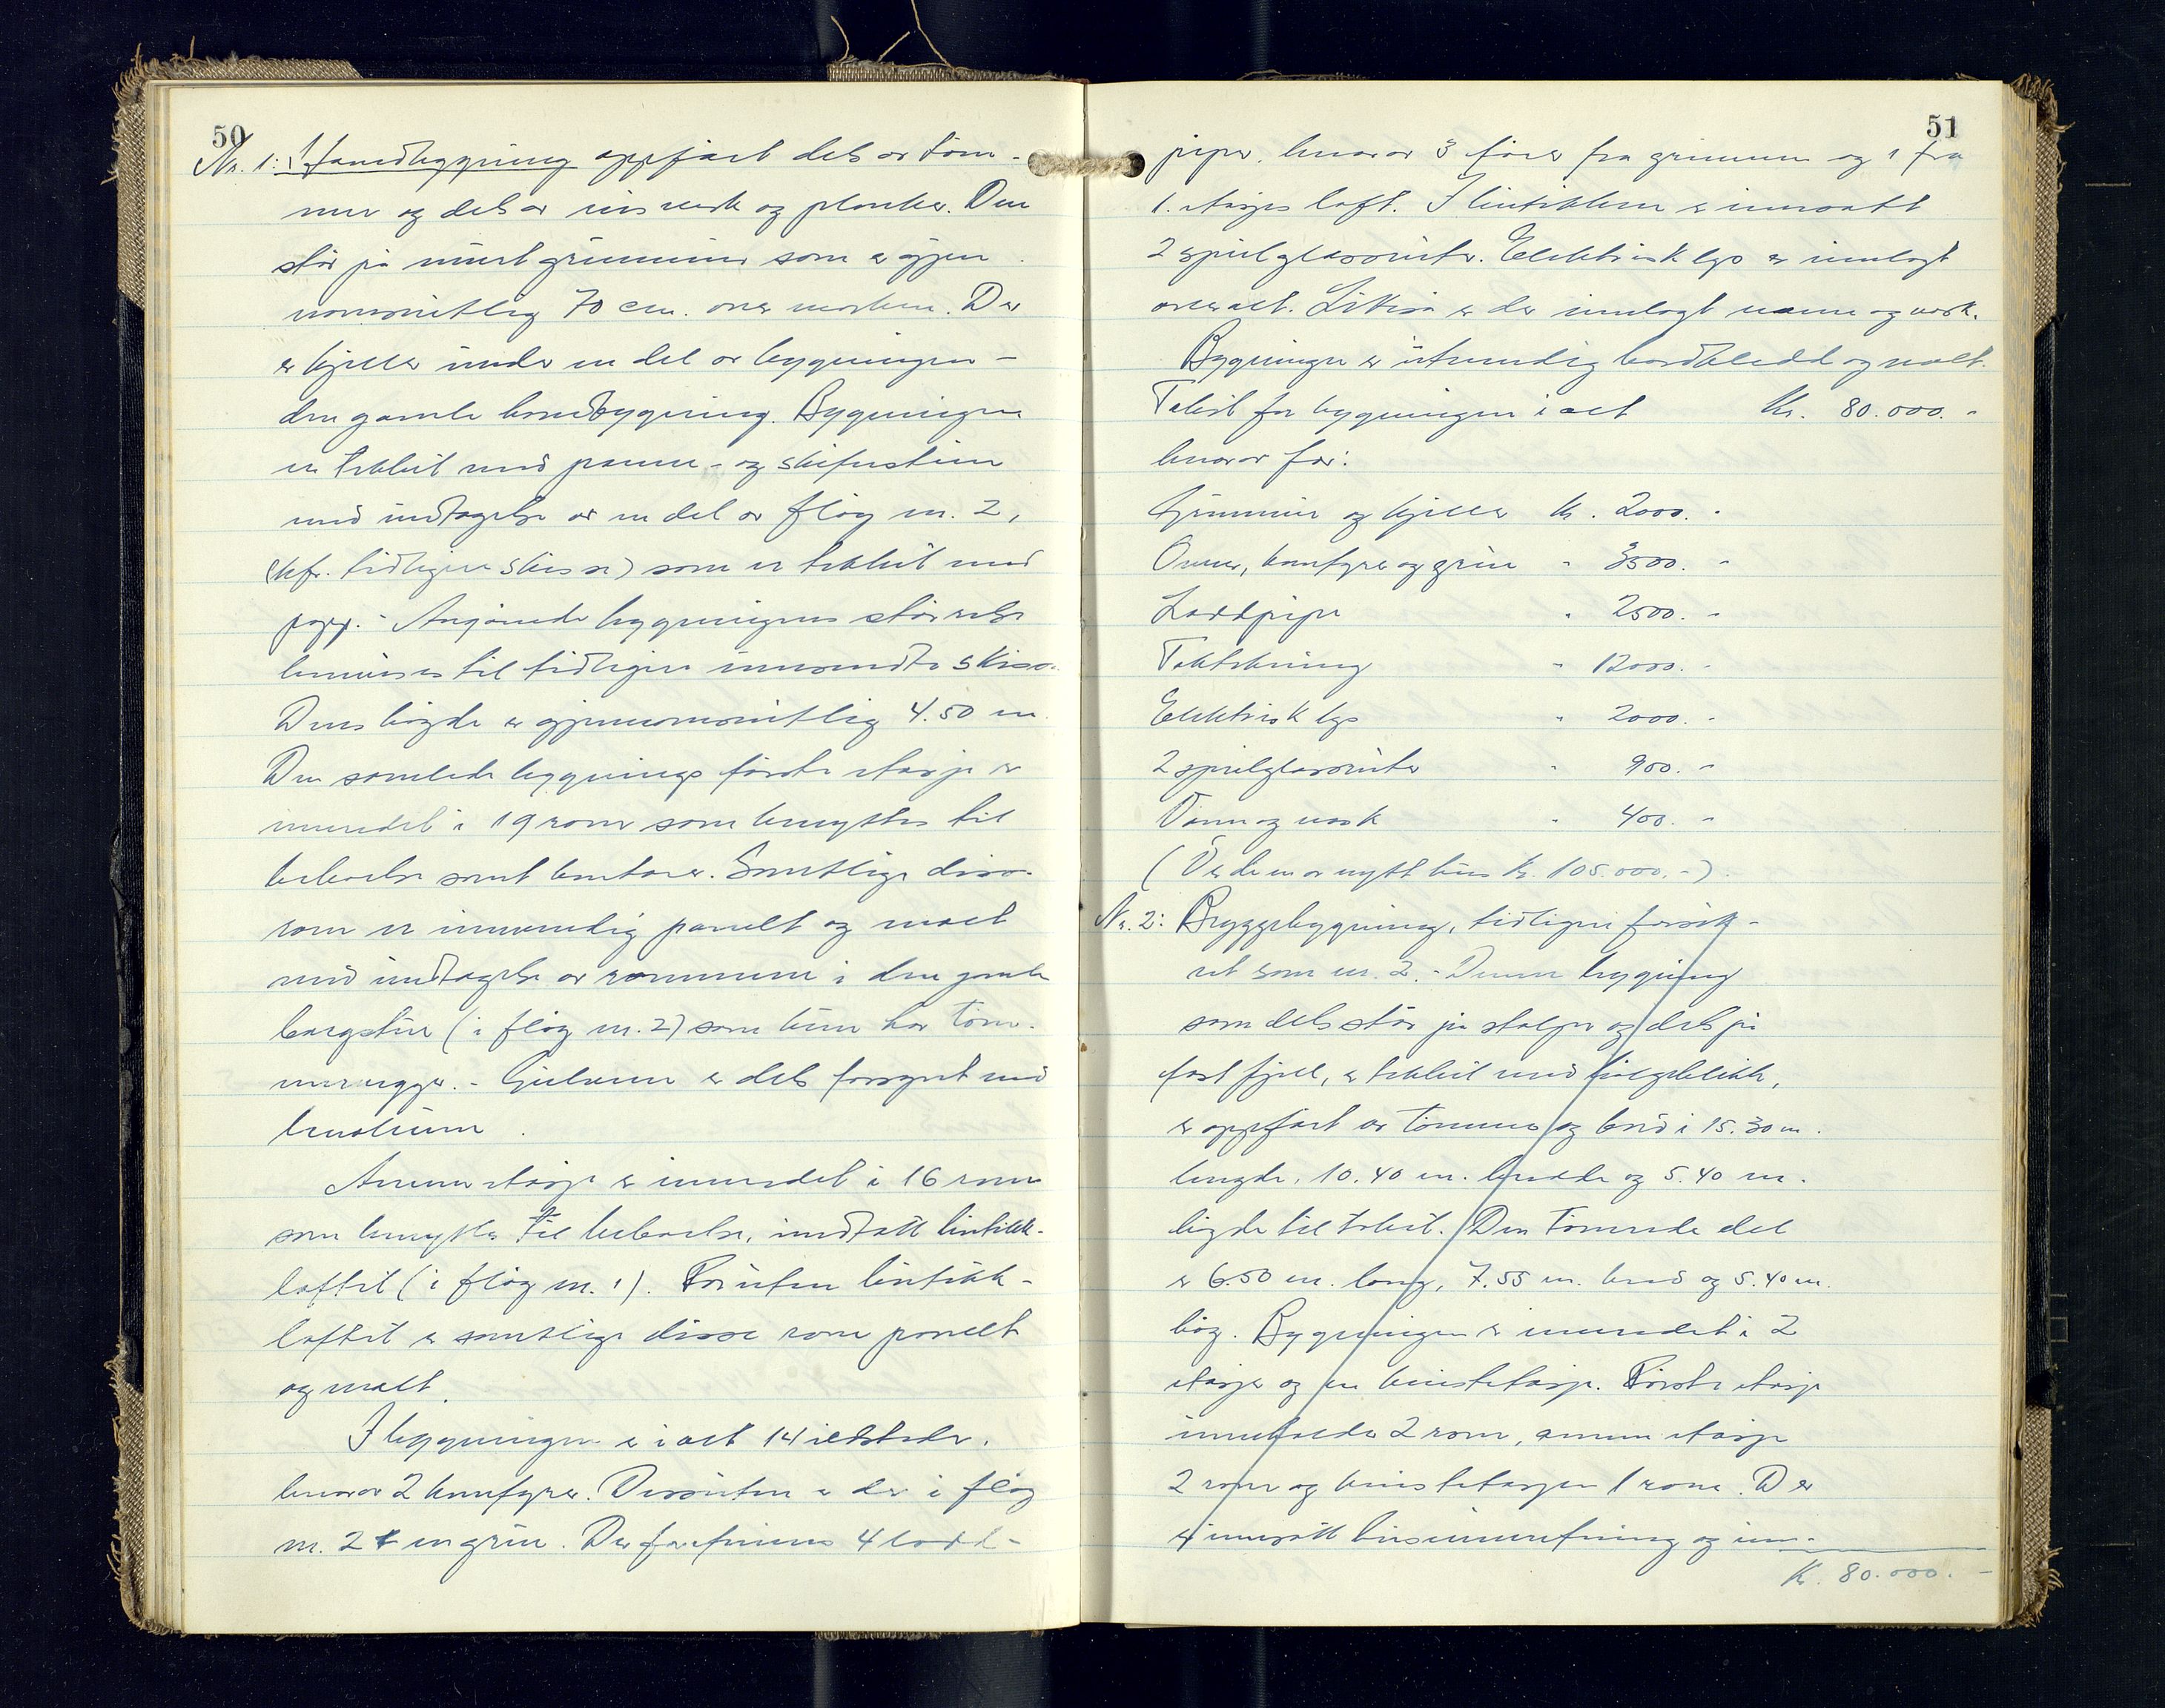 50
Nr. 1: Hovedbygning oppført dels av töm-
mer og dels av binsverk og planker. Den
står på murt grunnmur som er gjen-
nomsnitlig 70 cm. over marken. Der
er kjeller under en del av bygningen -
den gamle hovedbygning. Bygningen
er tekket med panne- og skifersten
med undtagelse av en del av flöy nr. 2,
(kfr. tidligere skisse) som er tekket med
papp. - Angående bygningens störrelse
henvises til tidligere innsendte skisse.
Dens höyde er gjennomsnitlig 4.50 m.
Den samlede bygnings förste etasje er
innredet i 19 rom som benyttes til
beboelse samt kontorer. Samtlige disse
rom er innvendig panelt og malt
med undtagelse av rommene i den gamle
borgstue (i flöy nr. 2) som kun har töm-
mervegger. - Gulvene er dels forsynt med
linoleum.
Annen etasje er innredet i 16 rom
som benyttes til beboelse, undtatt butikk-
loftet (i flöy nr. 1). Foruten butikk-
loftet er samtlige disse rom panelt
og malt.
I bygningen er i alt 14 ildsteder,
hvorav 2 komfyrer. Dessuten er der i flöy
nr. 2 en grue. Der forefinnes 4 lodd-
51
piper, hvorav 3 förer fra grunnen og 1 fra
1. etasjes loft. I butikken er innsatt
2 speilglassruter. Elektrisk lys er innlagt
overalt. Likeså er der innlagt vann og vask.
Bygningen er utvendig bordkledd og malt.
Takst for bygningen i alt Kr. 80.000. -
hvorav for:
Grunnmur og kjeller Kr. 2000. -
Ovner, komfyrer og grue " 3500. -
Loddpipe " 2500. -
Taktekning " 12000. -
Elektrisk lys " 2000. -
2 speilglassruter " 900. -
Vann og vask " 400. -
(Verdien av nytt hus Kr. 105.000. -).
Nr. 2: Bryggebygning, tidligere forsik-
ret som nr. 2. - Denne bygning
som dels står på stolper og dels på
fast fjell, er tekket med bölgeblikk,
er oppfört av tömmer og bord i 15.30 m.
lengde, 10.40 m. bredde og 5.40 m.
höyde til taket. Den tömrede del
er 6.50 m. lang, 7.55 m. bred og 5.40 m.
höy. Bygningen er innredet i 2
etasjer og en kvistetasje. Förste etasje
inneholder 2 rom, annen etasje
2 rom og kvistetasjen 1 rom. Der
er innsatt og inn-
Kr. 80.000. -